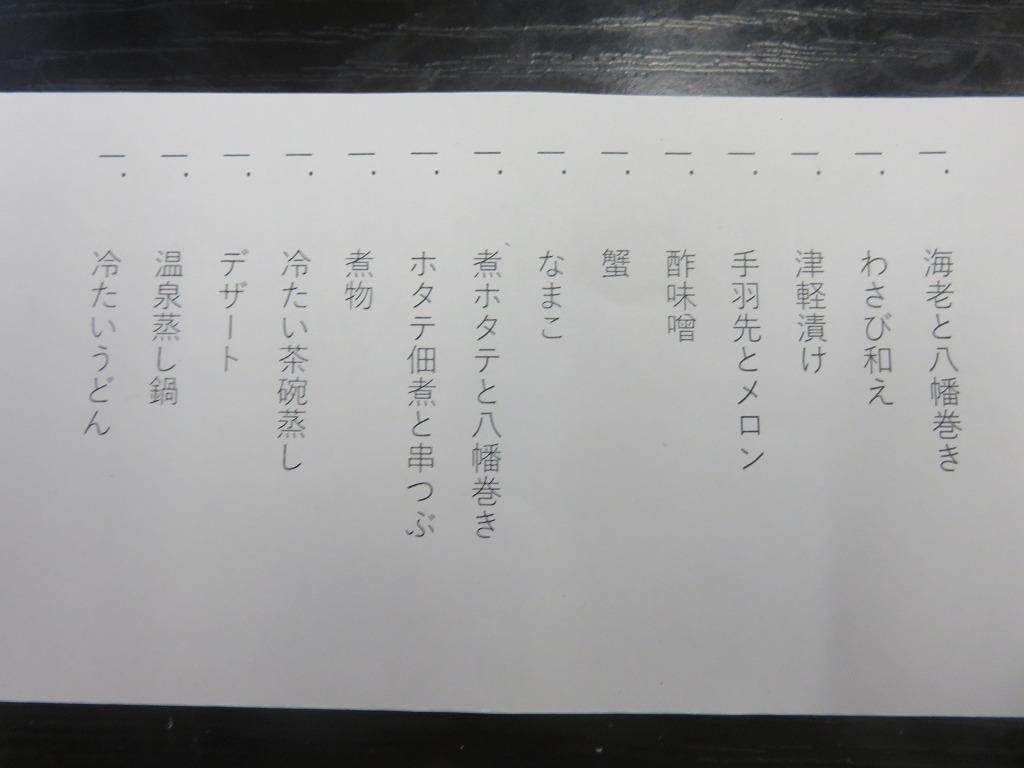 一. 海老と八幡巻き
一. わさび和え
一. 津軽漬け
一. 手羽先とメロン
一. 酢味噌
一. 蟹
一. なまこ
一. 煮ホタテと八幡巻き
一. ホタテ佃煮と串つぶ
一. 煮物
一. 冷たい茶碗蒸し
一. デザート
一. 温泉蒸し鍋
一. 冷たいうどん